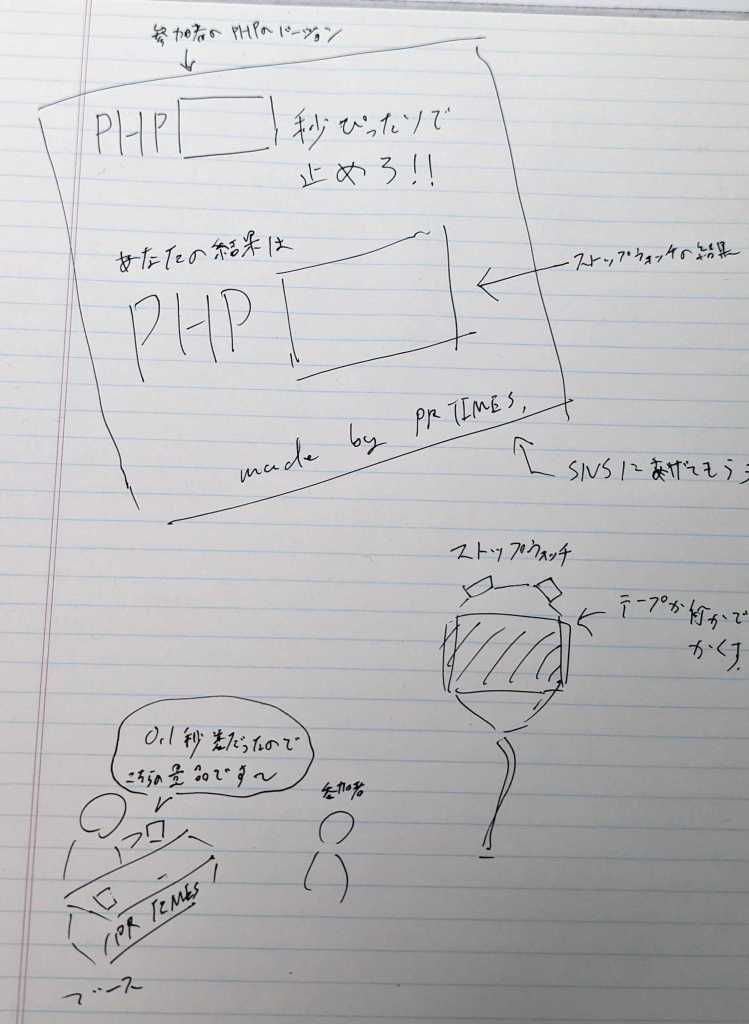 参加者の PHPのバージョン
PHP 秒ぴったりで
止めろ!!
あなたの結果は
PHP
ストップウォッチの結果
made by PR TIMES,
SNSにあげてもらう
ストップウォッチ
テープか何かで
かくす
0.1秒差だったので
こちらの景品です〜
参加者
PR TIMES
ブース